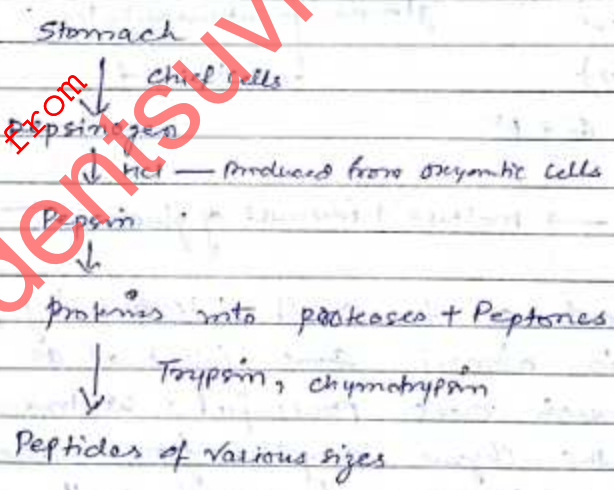 Stomach
↓ chief cells
Pepsinogen
↓ HCl — Produced from oxyntic cells
Pepsin
↓
proteins into proteoses + Peptones
↓ Trypsin, chymotrypsin
Peptides of various sizes
from
dentsuvi